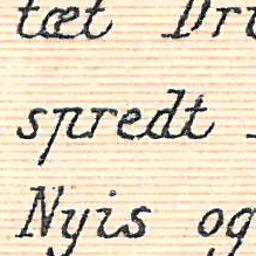 tæt
spredt
Nyis og